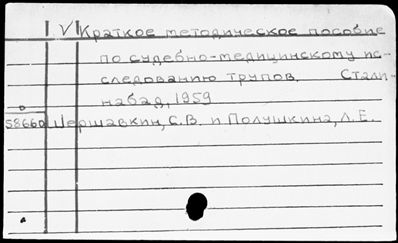 V Краткое методическое пособие
по судебно-медицинскому ис-
следованию трупов. Стали-
набад, 1959
58660 Шершавкин, С.В. и Полушкина, Л.Е.